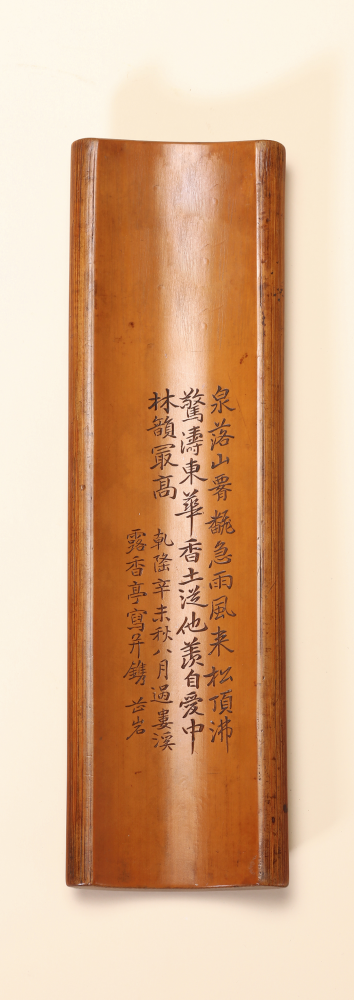 泉落山飜急雨風来松頂沸
驚濤東華香土從他羨自愛中
林韻冣高
乾隆辛未秋八月過婁溪
露香亭寫并鐫 芷岩